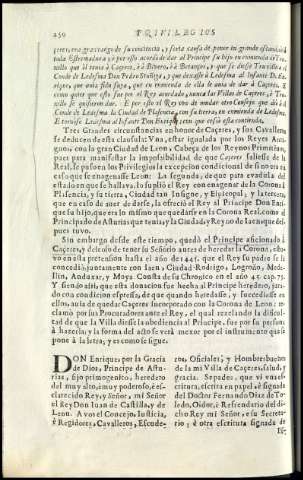 250 PRIVILEGIOS
ceres, era gran cargo de su conciencia, y seria causa de poner en grande escandalo a
toda Estremadura
llo que el tenia à Caçeres, è à Bivero, è à Betanços, y que se diesse Truxillo al
Conde de Ledesma Don Pedro Stuñiga, y que dexasse à Ledesma al Infante D. En-
rique, que avia sido suya, que su renuncia de ella le avia de dar à Caçeres. E
como quiera que esto fue por el Rey acordado, nunca las Villas de Caçeres, è Tru-
xillo se quisieron dar. E por esto el Rey con de mudar otro Consejo que diò al
Conde de Ledesma la Ciudad de Plasencia, con su tierra, en enmienda de Ledesma.
E tornòse Ledesma al Infante Don Enrique, con que cesò esta contienda.
Tres Grandes circunstancias en honor de Caçeres, y sus Cavalleros
se deducen de esta clausula: Una, estar igualada por los Reyes Arro-
gon, con la gran Ciudad de Leon, Cabeça de los Reynos Primitivos,
pues para manifestar la imposibilidad de que Caçeres saliesse de la
Real, se pusieron los Privilegios la excepcion condicional de sino en
caso que se enagenasse Leon: La segunda, de que para evadirla del
estado en que se hallava, lo suplió el Rey con enagenar de la Corona à
Plasencia, y su tierra, Ciudad tan Insigne, y Episcopal, y la tercera,
que en caso de aver de darse, la ofreciò el Rey al Principe Don Enri-
que su hijo, que era lo mismo que quedarse en la Corona Real, como el
Principado de Asturias que tenia, y la Ciudad y Reyno de Jaen que des-
pues tuvo.
Sin embargo desde este tiempo, quedò el Principe aficionado à
Caçeres, y deseoso de tener su Señorio antes de heredar la Corona, estu-
vo en esta pretension hasta el año de 1445. que el Rey su padre se la
concediò, juntamente con Jaen, Ciudad-Rodrigo, Logroño, Mede-
llin, Andaxar, y Moya. Consta de su Chronica en el año 45. cap. 75.
Y siendo assi, que esta donacion fue hecha al Principe heredero, pasan-
do con condicion expressa, de que quando heredasse, y sucediesse en
ellos, avia de quedar Caçeres incorporado con la Corona de Leon: re-
clamò por sus Procuradores ante el Rey, el qual rezelando la dificul-
tad de que la Villa diesse la obediencia al Principe, fue por su persona
à hazerlo; y la forma del año se verà mexor por el instrumento que
pone à la letra, y es como se sigue.
DON Enrique, por la Gracia
de Dios, Principe de Astu-
rias, fijo primogenito, heredero
del muy alto, è muy poderoso, è es-
clarecido Rey, y Señor, mi Señor
el Rey Don Juan de Castilla, y de
Leon. A vos el Concejo, Justicia,
è Regidores, Cavalleros, Escude-
ros, Oficiales, y Hombres buenos
de la mi Villa de Caçeres, salud, y
gracia. Sepades, que vì una es-
critura, escrita en papel, è signada
del Doctor Fernando Diaz de To-
ledo, Oidor, è Refrendario del di-
cho Rey mi Señor, è su Secreta-
rio; è otra escritura signada de